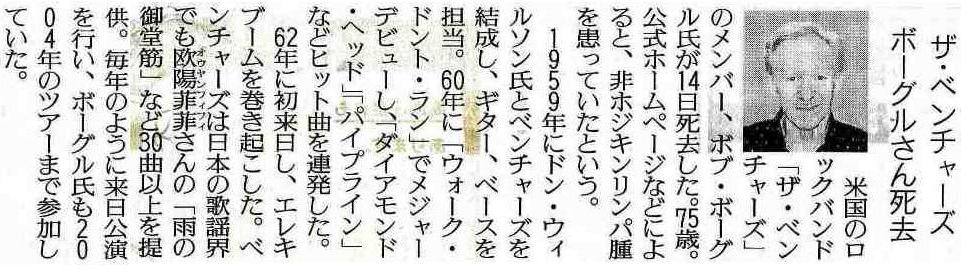 ザ・ベンチャーズ
ボーグルさん死去
米国のロ
ックバンド
「ザ・ベン
チャーズ」
のメンバー、ボブ・ボーグ
ル氏が14日死去した。75歳。
公式ホームページなどによ
ると、非ホジキンリンパ腫
を患っていたという。
1959年にドン・ウィ
ルソン氏とベンチャーズを
結成し、ギター、ベースを
担当。60年に「ウォーク・
ドント・ラン」でメジャー
デビューし、「ダイアモンド
・ヘッド」「パイプライン」
などヒット曲を連発した。
62年に初来日し、エレキ
ブームを巻き起こした。ベ
ンチャーズは日本の歌謡界
オウヤンフィフィ
でも欧陽菲菲さんの「雨の
御堂筋」など30曲以上を提
供。毎年のように来日公演
を行い、ボーグル氏も20
04年のツアーまで参加し
ていた。